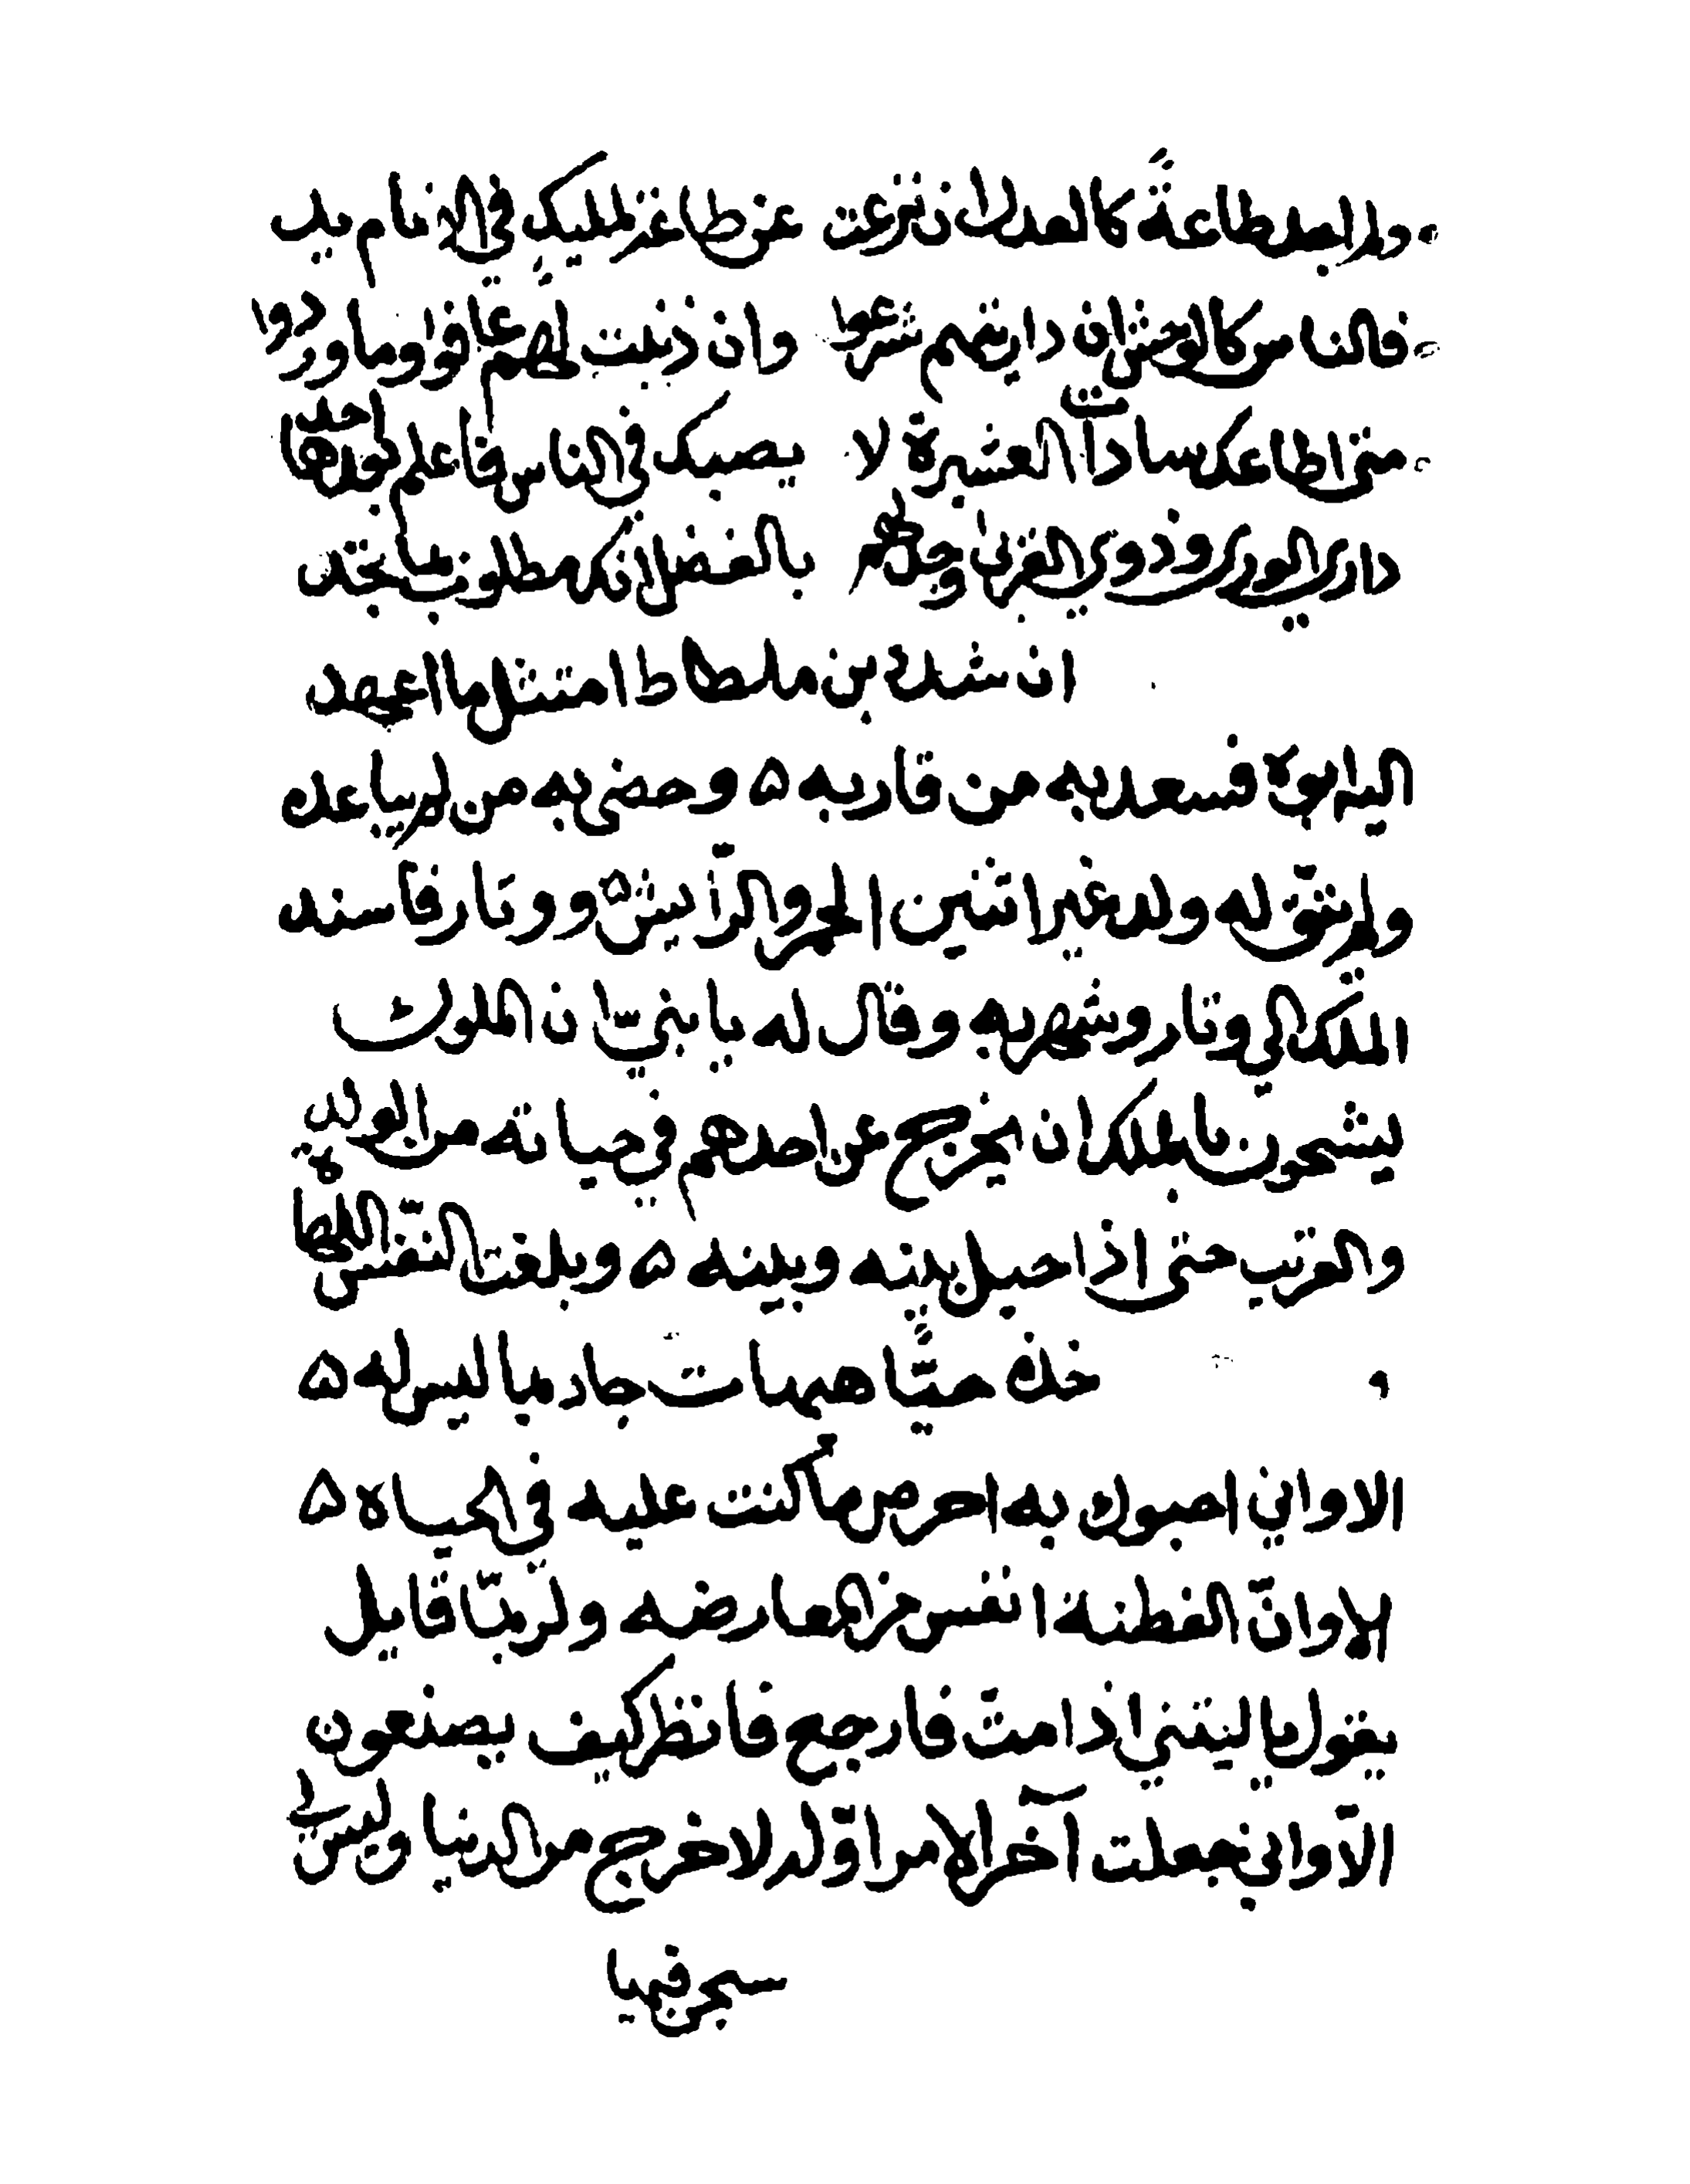 ولم ابد طاعة كالعدل ان نزعت عن طاعة لمليك في الانام يد
فالناس كالوحش ان داريتهم شرعوا وان ذنبت لهم عافوا وما وردوا
متى اطاعك سادات العشيرة لا يصبك في الناس فاعلم كورها احد
داري الورى وذوي القربى وجلهم بالفضل انك مطلوب بما تجد
ان شدد بن ملطاط امتثل ما اعهد
اليه ابوه فسعد به من قاربه ۵ وحضي به من لم يباعده
ولم يبق له ولد غير اثنين الحمر والرآيش ۵ ووتار فاسند
الملك الى وتار وشهر به وقال له يا بني ان الملوك
يشحون بالملك ان يخرج عن احدهم في حياته من الولد
والقرب حتى اذا حيل بينه وبينه ۵ وبلغت النفس اللها
خذه ميتا هيهات جاد بما ليس له ۵
الا واني احبوك به احرص ما كنت عليه في الحياه ۵
الا وان الفطنة انفس من المعارضه ولربّما قايل
يقول يا ليتني اذا مت فارجع فانظر كيف يصنعون
الا واني جعلت آخر الامر اوله لاخرج من الدنيا وليس لي
سجر فيها